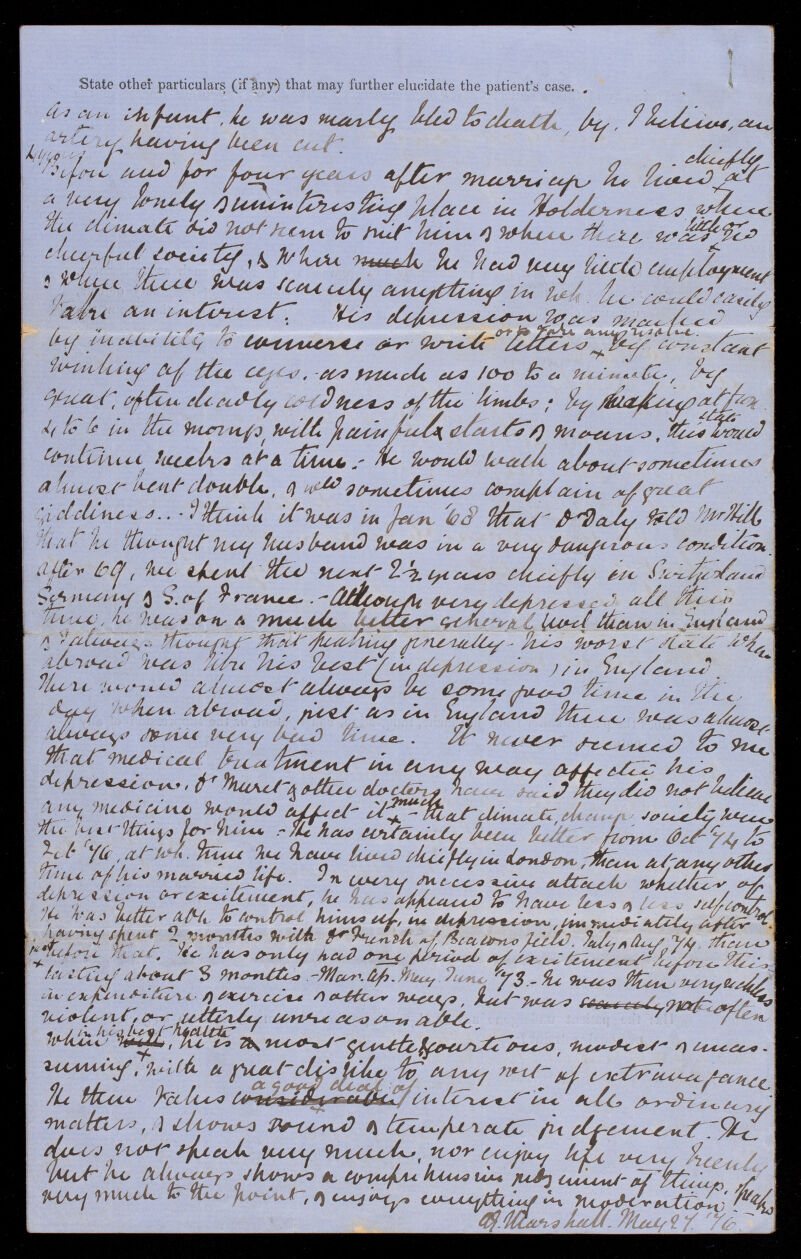 State other particulars (if any) that may further elucidate the patient's case.
As an infant, he was nearly bled to death, by, I believe, an
artery having been cut.
Before and for four years after marriage he lived chiefly at
a very lonely & uninteresting place in Holderness where
the climate did not seem to suit him & where there was little or no
cheerful society, & where much he had very little employment
& where there was scarcely anything in wh. he could easily
take an interest. His depression was marked
by inability to converse or write letters or to take any resolve, by constant
winking of the eyes, - as much as 100 to a minute, by
great, often deadly coldness of the limbs; by waking at from
4 to 6 in the morngs, with painful starts & moans. this state would
continue weeks at a time. - He would walk about sometimes
almost bent double, & wld sometimes complain of great
giddiness. . - I think it was in Jan '68 that Dr Daly told Mr Hill
that he thought my husband was in a very dangerous condition.
After 69, we spent the next 2 1/2 years chiefly in Switzerland
Germany & S. of France. - Although very depressed all this
time, he was on a much better general level than in England
& I always thought that speaking generally - his worst state when
abroad was like his best (in depression) in England
There would almost always be some good time in the
day when abroad, just as in England there was almost
always some very bad time. It never seemed to me
that medical treatment in any way affected his
depression. Dr Muret & other doctors have said they did not believe
any medicine would affect it much - that climate, change, society were
the best things for him - He has certainly been better from Oct '74 to
Feb '76, at wh. time we have lived chiefly in London, than at any other
time of his married life. In every successive attack whether of
depression or excitement, he has appeared to have less & less self control.
He was better able to control himself, in depression, immediately after
having spent 2 months with Dr French of Beaconsfield. July & Aug '74, than
just before that. He has only had one period of excitement before this
lasting about 3 months - Mar. Ap. May June '73 - he was then very reckless
in expenditure & exercise & other ways, but was scarcely not often
violent, or utterly unreasonable.
When well, in his best health, he is a most gentle & courteous, modest & unas-
suming, with a great dislike to any sort of extravagance
He then takes considerable a good deal of interest in all ordinary
matters, & shows sound & temperate judgement. He
does not speak very much, nor enjoy life very keenly
but he always shows a comprehensive judgment of things, speaks
very much to the point, & enjoys everything in moderation.
Marshall. May 27. '76.